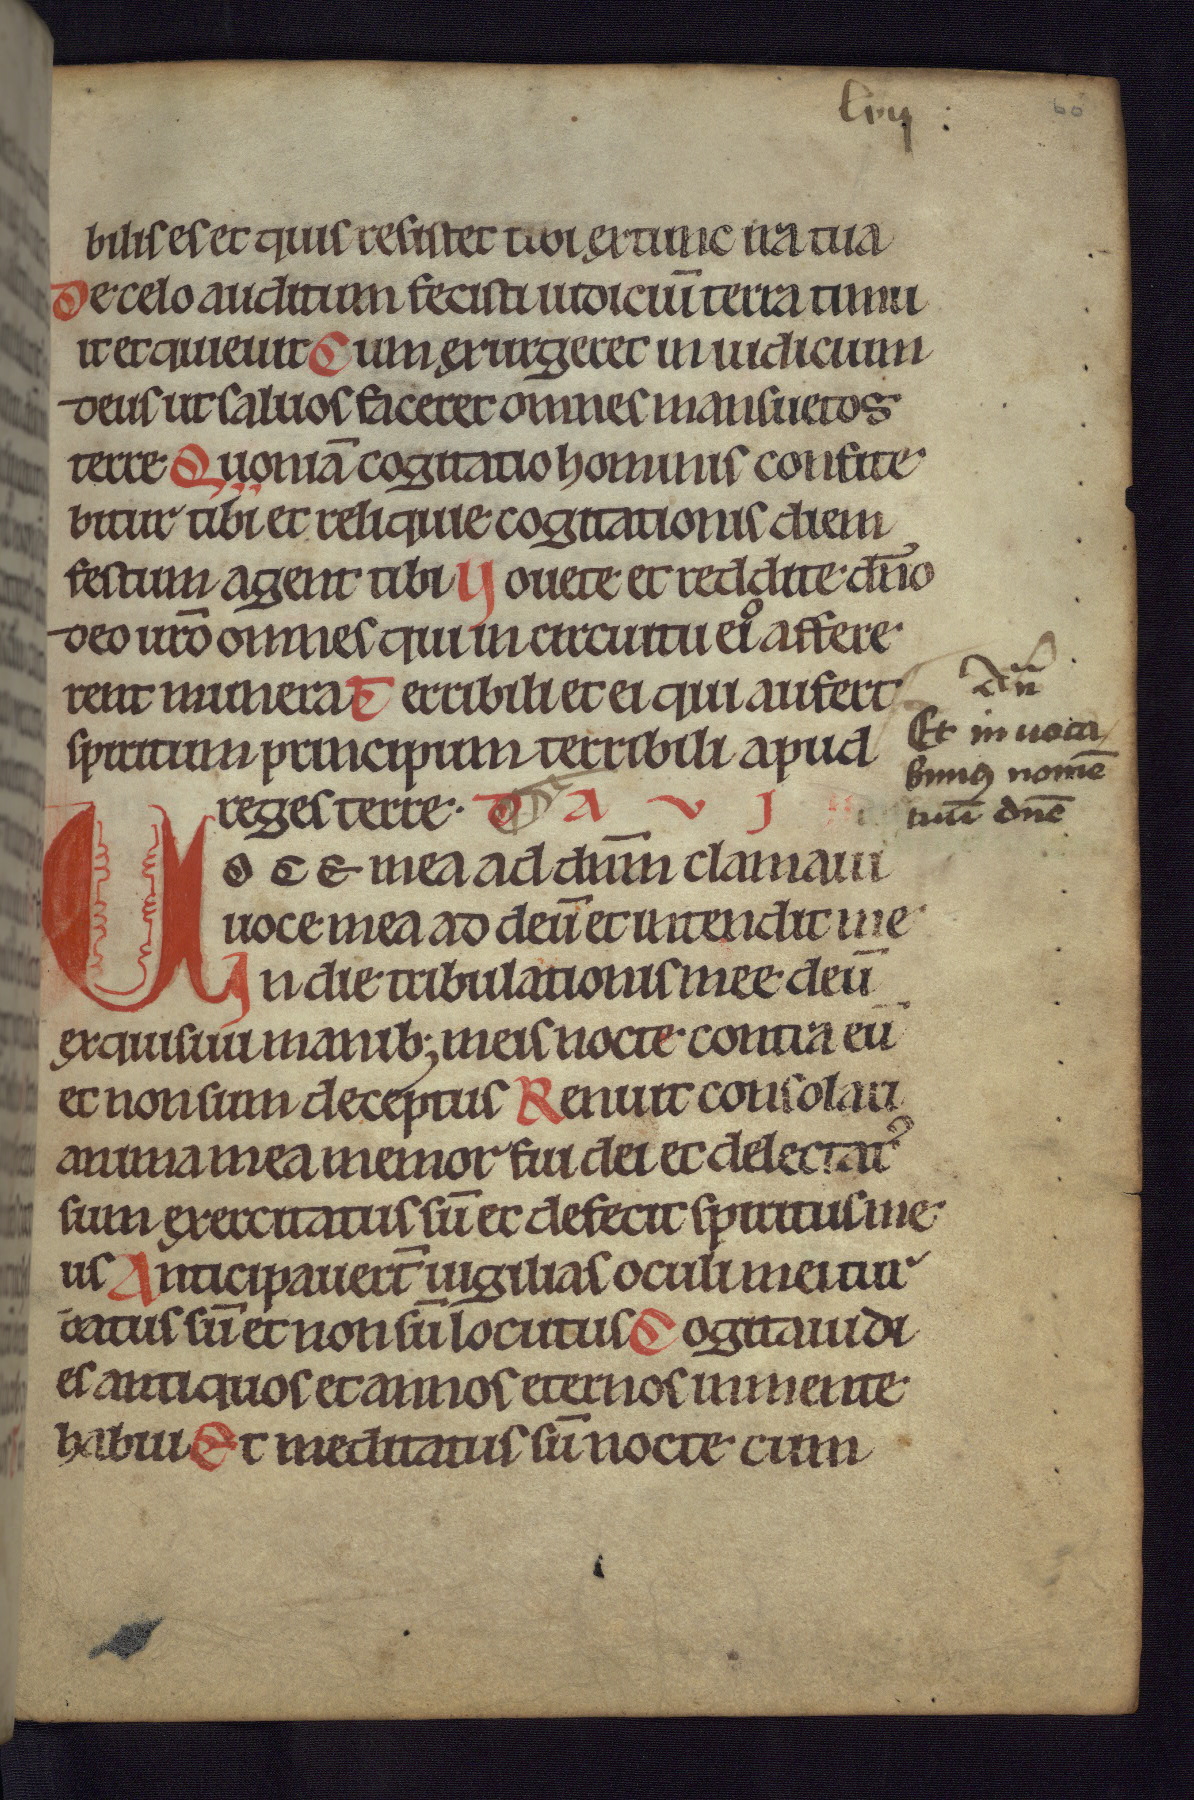 60
bilis es et quis resistet tibi ex tunc ira tua
De celo auditum fecisti iudiciū terra timu
it et quieuit Cum exurgeret in iudicium
deus ut saluos faceret omnes mansuetos
terre Quoniā cogitatio hominis confite
bitur tibi et reliquie cogitationis diem
festum agent tibi Vouete et reddite dn̄o
deo ur̄o omnes qui in circuitu eiꝰ affere
rent munera Terribili et ei qui aufert
spiritum principum terribili apud
reges terre. D A V I
añ
Et inuoca
bimꝰ nomē
tuū dn̄e
VOCE mea ad dūm clamaui
uoce mea ad deū et intendit me
In die tribulationis mee deū
exquisiui manib; meis nocte contra eū
et non sum deceptus Renuit consolari
anima mea memor fui dei et delectatꝰ
sum exercitatus sū et defecit spiritus me
us Anticipauert̄ uigilias oculi mei tur
batus sū et non sū locutus Cogitaui di
es antiquos et annos eternos in mente
habui Et meditatus sū nocte cum